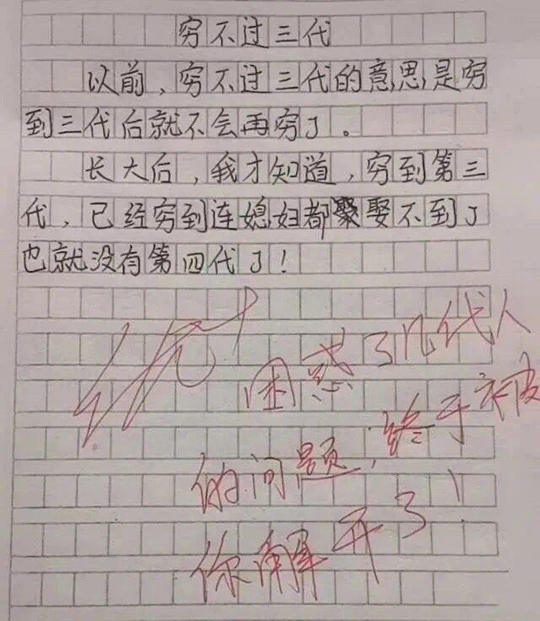 穷不过三代
以前，穷不过三代的意思是穷
到三代后就不会再穷了。
长大后，我才知道，穷到第三
代，已经穷到连媳妇都聚娶不到了
也就没有第四代了！
优+
困惑了几代人
的问题，终于被
你解开了！